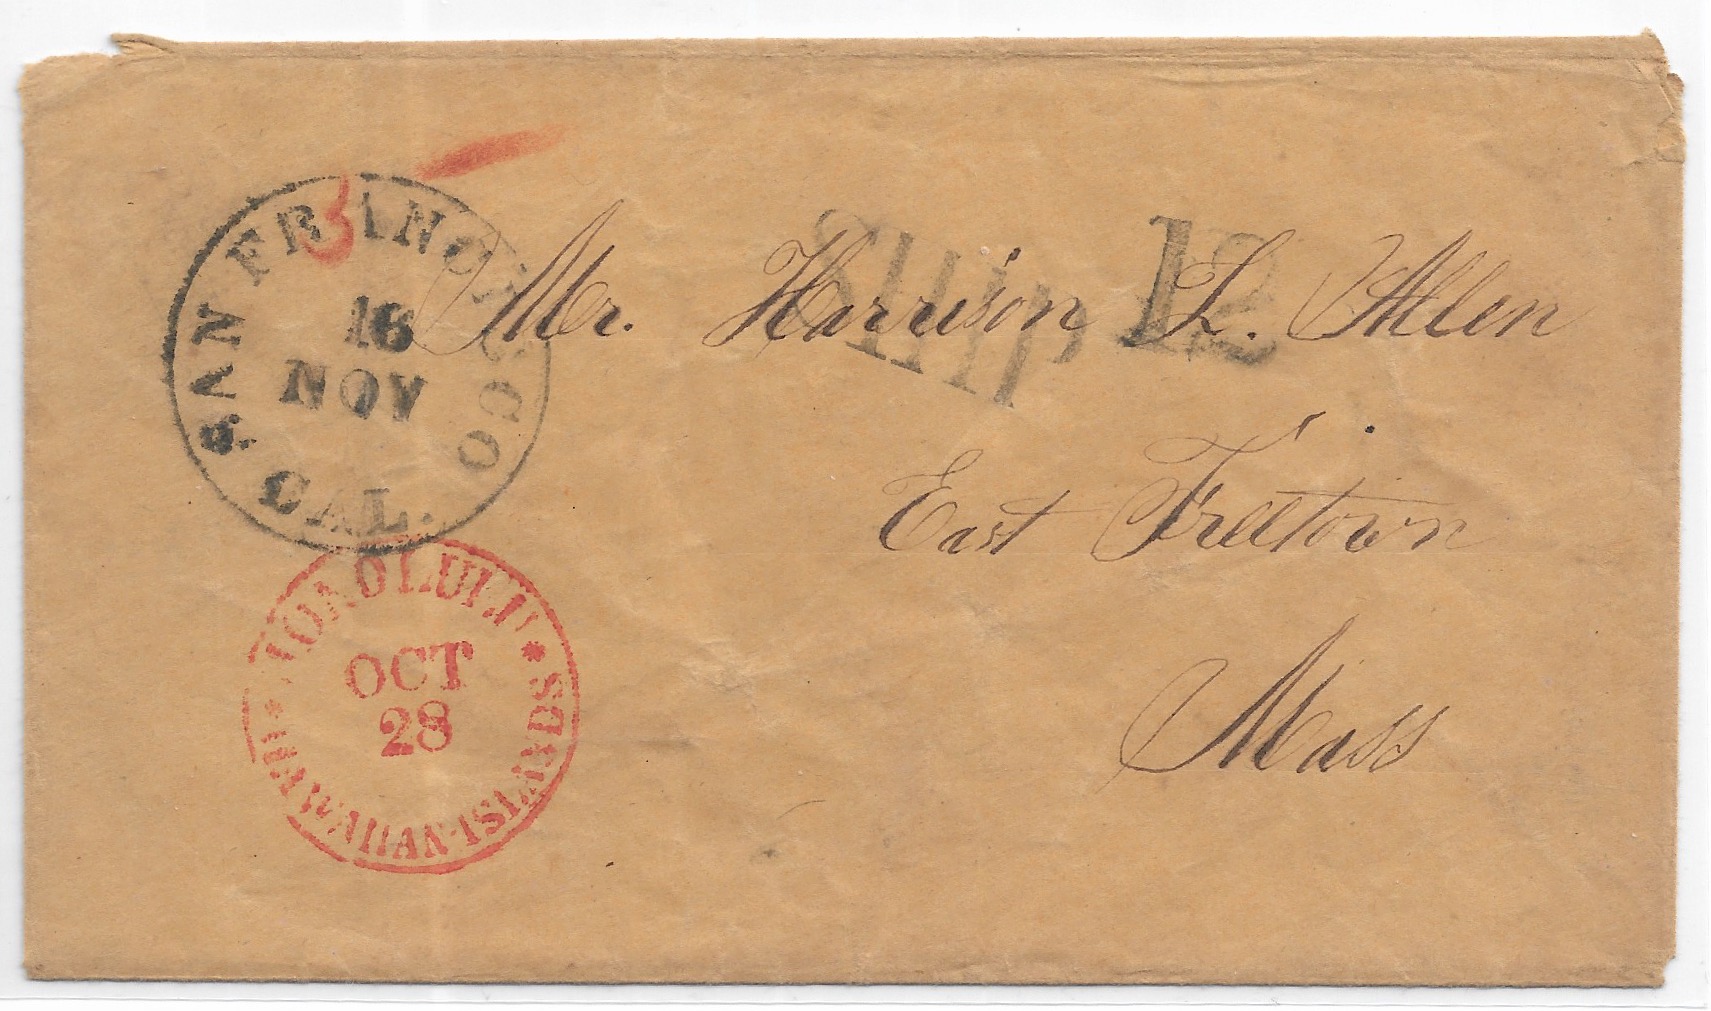 SAN FRANCISCO
16
NOV
CAL.
3
Ship 12
Mr. Harrison L. Allen
East Freetown
Mass
HONOLULU
OCT
28
* HAWAIIAN·ISLANDS *